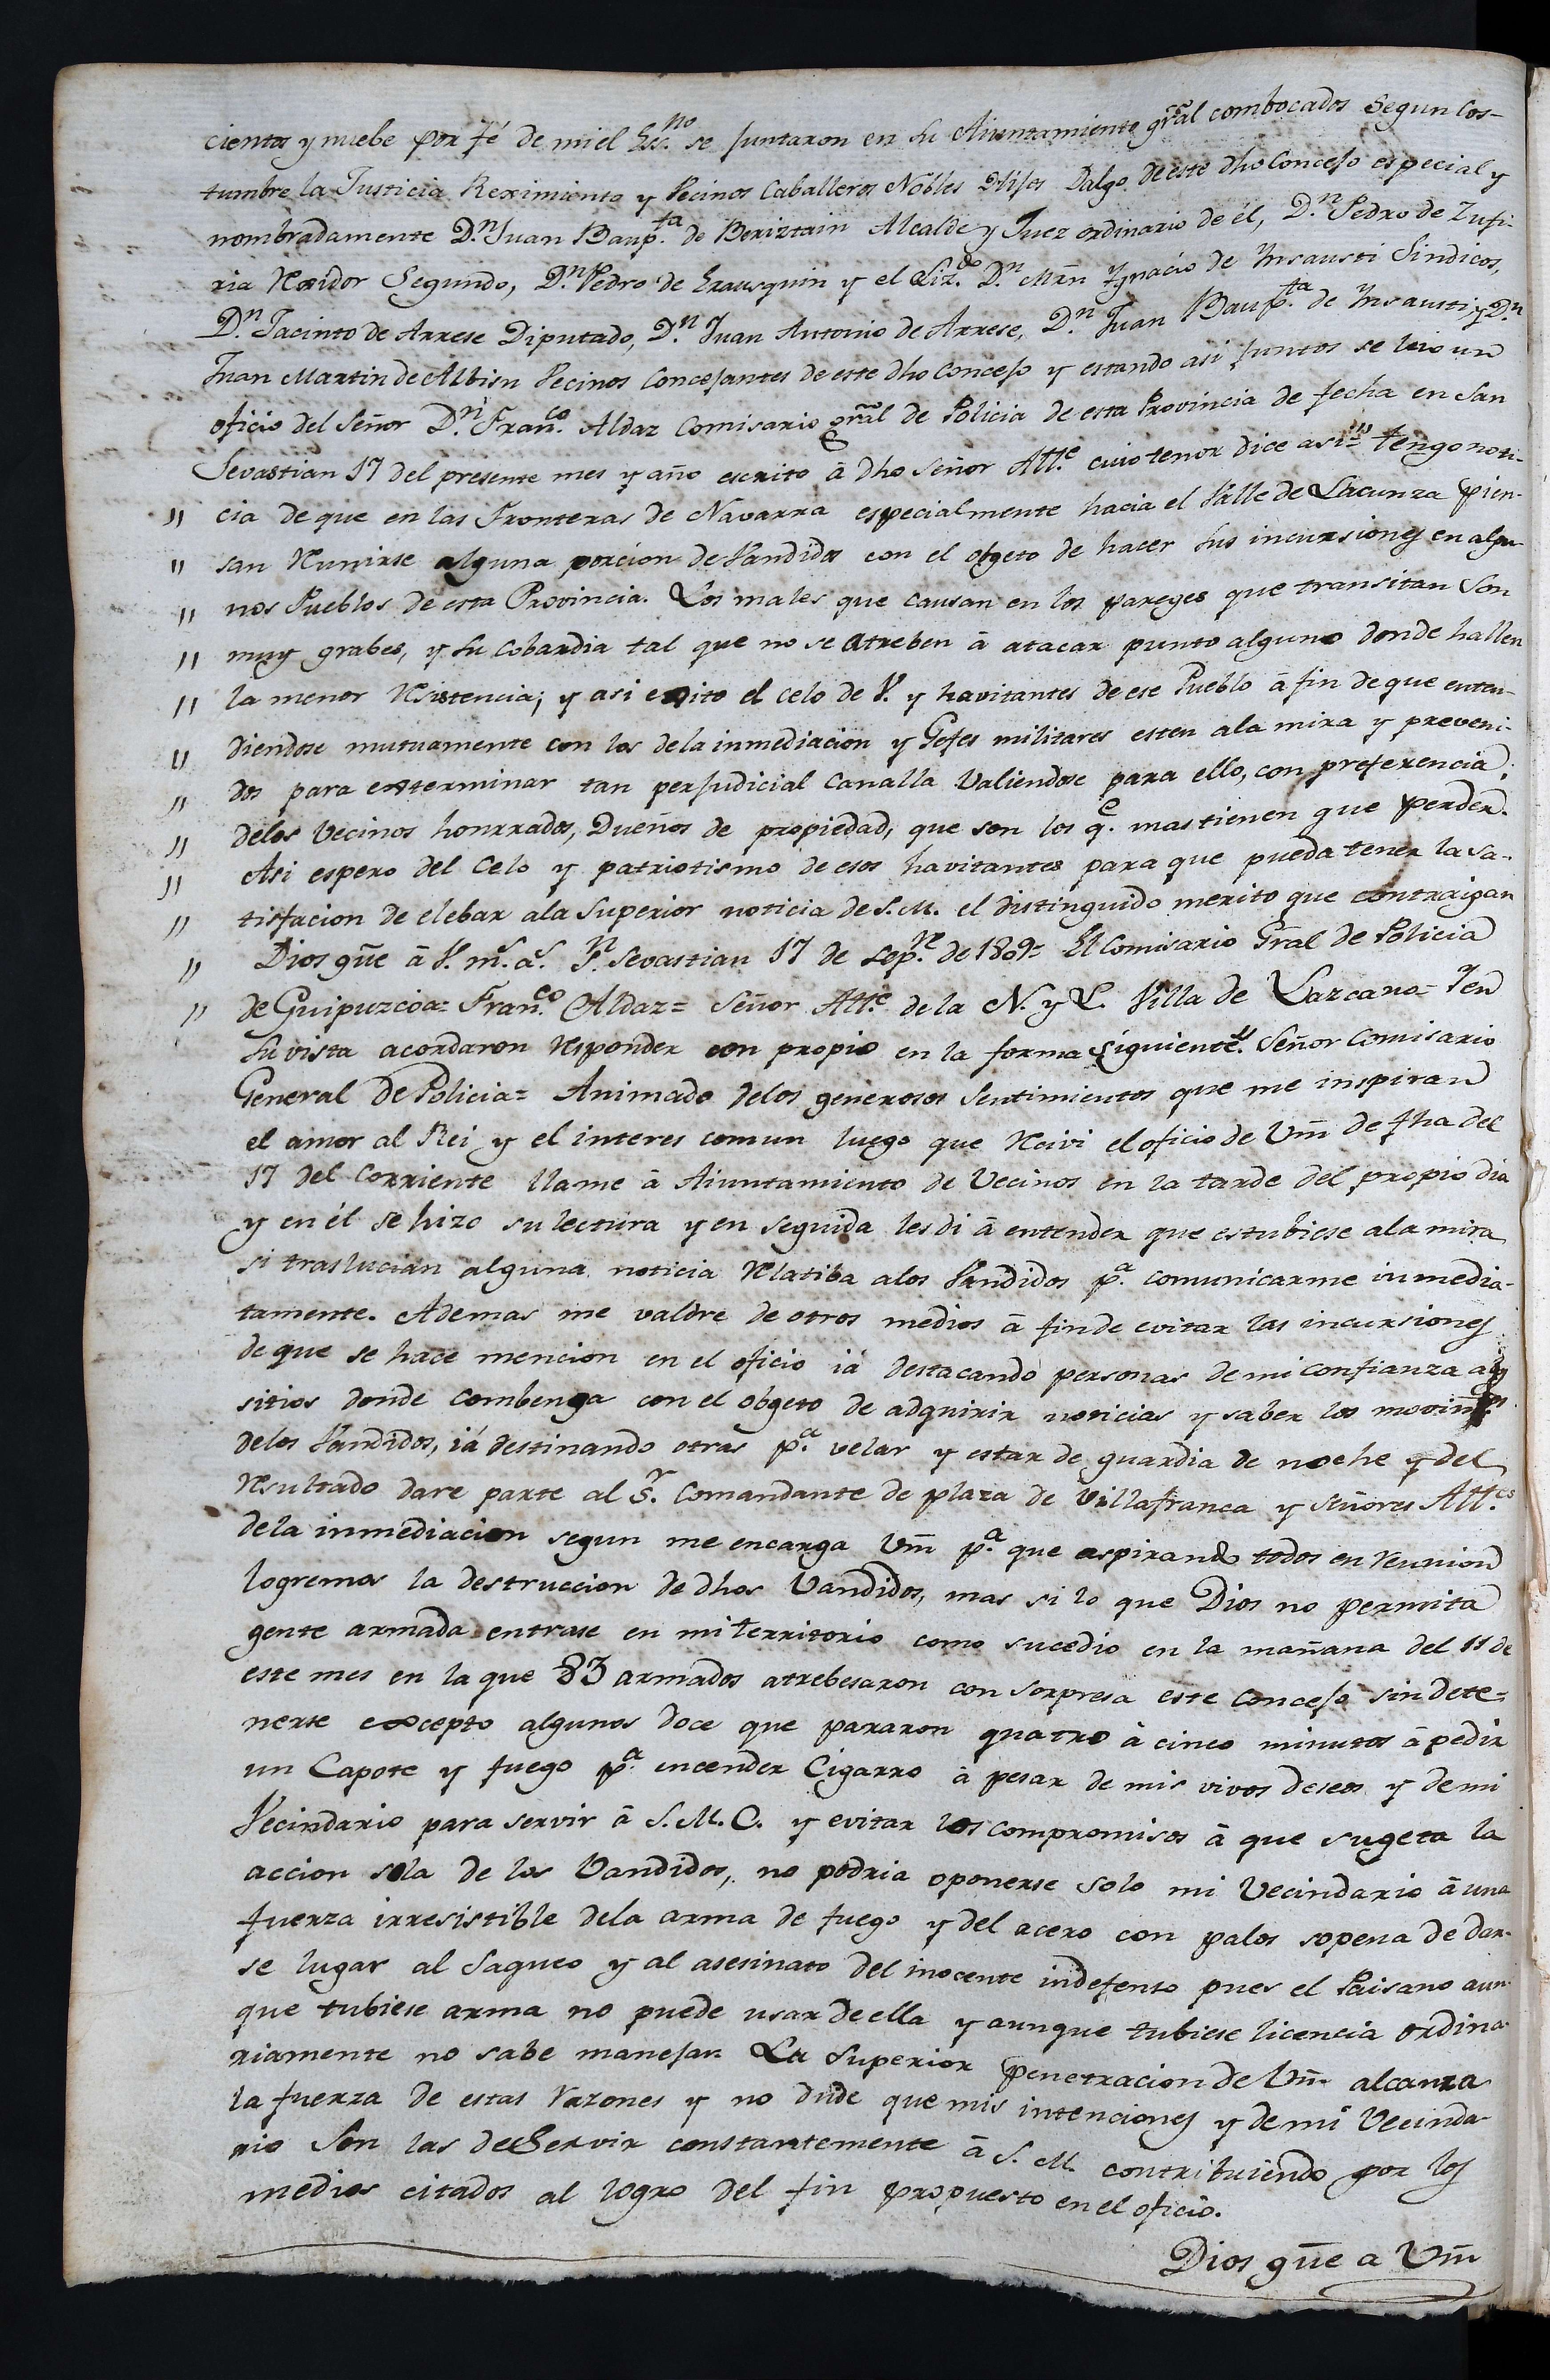 cientos y nuebe por fé de mi el Esc.no se juntaron en su Aiuntamiento gral combocados segun cos-
tumbre la Justicia Reximiento y Vecinos Caballeros Nobles Hijos Dalgo de este dho Concejo especial y
nombradamente D.n Juan Baup.ta de Beriztain Alcalde y Juez ordinario de él, D.n Pedro de Zufi-
ria Rexidor Segundo, D.n Pedro de Erausquin y el Liz.do D.n Mrn Ygnacio de Ynsausti Sindicos,
D.n Jacinto de Arrese Diputado, D.n Juan Antonio de Arrese, D.n Juan Baup.ta de Ynsausti y D.n
Juan Martin de Albisu Vecinos Concejantes de este dho Concejo y estando asi juntos se leio un
oficio del Señor D.n Fran.co Aldaz Comisario gral de Policia de esta Provincia de fecha en San
Sevastian 17 del presente mes y año escrito à dho Señor Alt.e cuio tenor dice asi=" tengo noti-
" cia de que en las Fronteras de Navarra especialmente hacia el Valle de Lacunza pien-
" san Reunirse alguna porcion de Vandidos con el objeto de hacer sus incursiones en algu-
" nos Pueblos de esta Provincia. Los males que causan en los pareges que transitan son
" muy grabes, y su cobardia tal que no se atreben à atacar punto alguno donde hallen
" la menor Resistencia; y asi exito el celo de V. y havitantes de ese Pueblo à fin de que enten-
" diendose mutuamente con los dela inmediacion y Gefes militares esten ala mira y preveni-
" dos para exterminar tan perjudicial canalla valiendose para ello, con preferencia,
" delos vecinos honrrados, Dueños de propiedad, que son los q.e mas tienen que perder.
" Asi espero del celo y patriotismo de esos havitantes para que pueda tener la sa-
" tisfacion de elebar ala superior noticia de S.M. el distinguido merito que contraigan
" Dios gue à V. m.s a.s S.n Sevastian 17 de Sep.re de 1809= El Comisario Gral de Policia
" de Guipuzcoa= Fran.co Aldaz= Señor Alt.e de la N. y L. Villa de Lazcano= Y en
su vista acordaron Responder con propio en la forma siguiente." Señor Comisario
General de Policia= Animado delos generosos sentimientos que me inspiran
el amor al Rei y el interes comun luego que Recivi el oficio de Vm de fha del
17 del corriente llame à Aiuntamiento de Vecinos en la tarde del propio dia
y en él se hizo su lectura y en seguida les di à entender que estubiese ala mira
si traslucian alguna noticia Relatiba alos Vandidos p.a comunicarme inmedia-
tamente. Ademas me valdre de otros medios à fin de evitar las incursiones
de que se hace mencion en el oficio iá destacando personas de mi confianza alos
sitios donde combenga con el objeto de adquirir noticias y saber los movim.tos
delos Vandidos, iá destinando otras p.a velar y estar de guardia de noche y del
Resultado dare parte al S.r Comandante de plaza de Villafranca y señores Alt.es
dela inmediacion segun me encarga Vm p.a que aspirando todos en Reunion
logremos la destruccion de dhos Vandidos, mas si lo que Dios no permita
gente armada entrase en mi territorio como sucedio en la mañana del 11 de
este mes en la que 83 armados atrebesaron con sorpresa este Concejo sin dete-
nerse excepto algunos doce que pararon quatro à cinco minutos à pedir
un Capote y fuego p.a encender Cigarro à pesar de mis vivos deseos y de mi
Vecindario para servir à S.M.C. y evitar los compromisos à que sugeta la
accion sola de los Vandidos, no podria oponerse solo mi Vecindario à una
fuerza irresistible dela arma de fuego y del acero con palos sopena de dar-
se lugar al saqueo y al asesinato del inocente indefenso pues el Paisano aun-
que tubiese arma no puede usar de ella y aunque tubiese licencia ordina-
riamente no sabe manejar. La superior penetracion de Vm alcanza
la fuerza de estas razones y no dude que mis intenciones y de mi Vecinda-
rio son las de servir constantemente à S.M. contribuiendo por los
medios citados al logro del fin propuesto en el oficio.
Dios gue a Vm